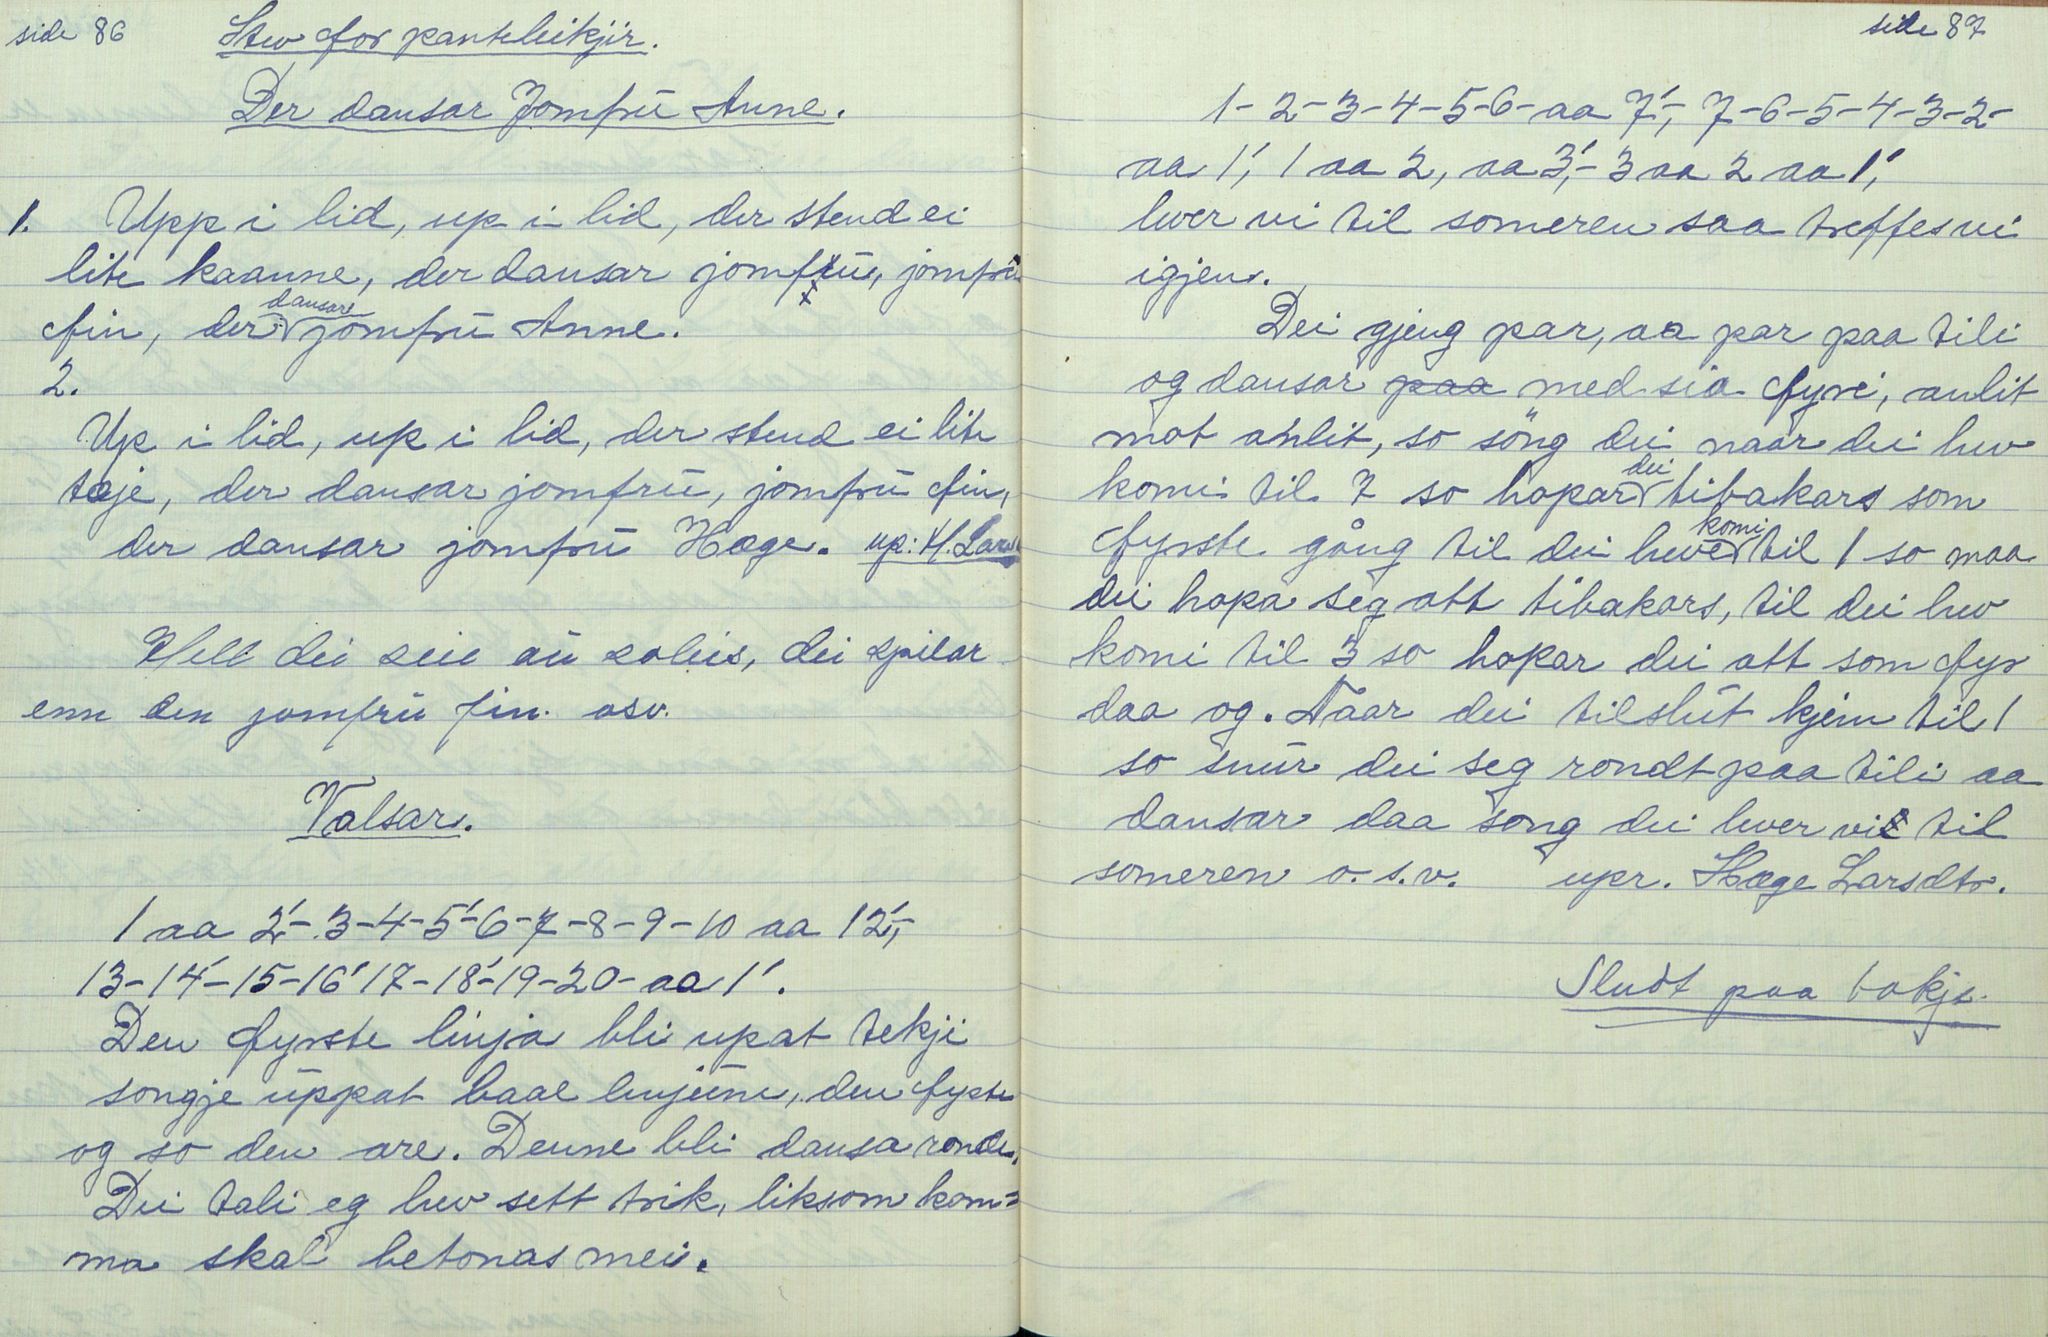 side 86 Stev for panteleikjir.
Der dansar Jomfrū Anne.
1. Upp i lid, up i lid, der stend ei
lite kaanne, der dansar jomfrū, jomfrū
fin, der dansar jomfrū Anne.
2.
Up i lid, up i lid, der stend ei lite
tøje, der dansar jomfrū, jomfrū fin,
der dansar jomfrū Hæge. up: H. Lars
Hell dei seie aū soleis, dei spelar
enn den jomfrū fin. osv.
Valsar.
1 aa 2'-3-4-5'-6-7-8-9-10 aa 12',-
13-14'-15-16' 17-18'-19-20-aa 1'.
Den fyrste linja bli upat tekji
songje ūppat baae linjene, den fyste
og so den are. Denne bli dansa ronde.
Dei tali eg hev sett trik, liksom kom=
ma skal betonas mei.
side 87
1-2-3-4-5-6-aa 7',- 7-6-5-4-3-2-
aa 1', 1 aa 2, aa 3',- 3 aa 2 aa 1',
lver vi til someren saa treffes vi
igjen.
Dei gjeng par, aa par paa tili
og dansar paa med sia fyri, anlit
mot anlit, so söng dei naar dei hev
komi til 7 so hopar dei tibakars som
fyrste gång til dei heve komi til 1 so maa
dei hopa seg att tibakars, til dei hev
komi til 3 so hopar dei att som fyr
daa og. Naar dei tilslūt kjem til 1
so snūr dei seg rondt paa tili aa
dansar daa song dei lver vi til
someren o.s.v. upr. Hæge Larsdtr.
Sludt paa bokje.